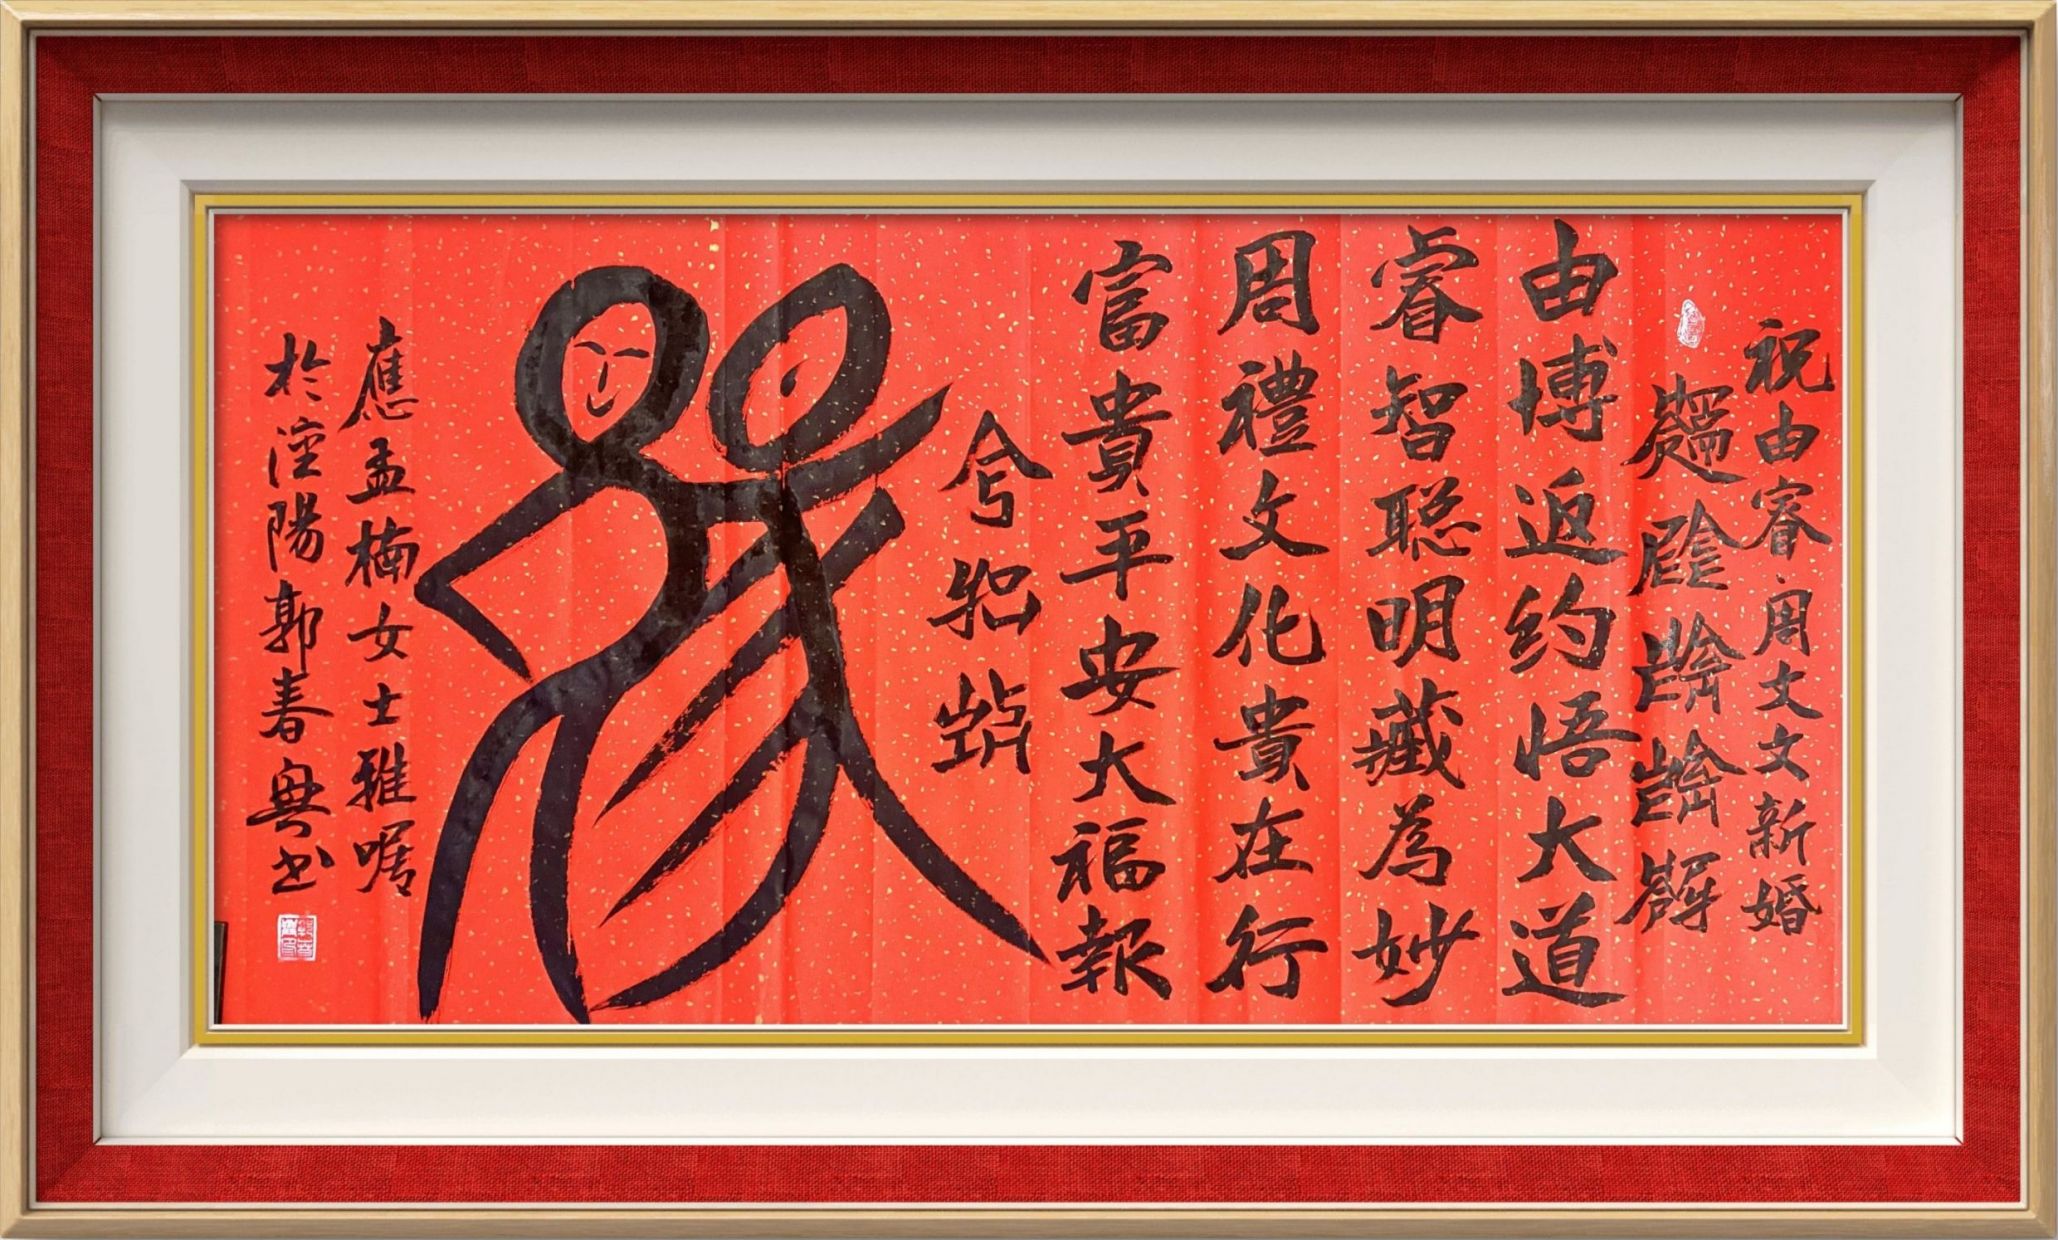 祝由睿周文文新婚
由博返约悟大道
睿智聪明藏为妙
周禮文化貴在行
富貴平安大福報
應孟楠女士雅嘱
於淦陽郭春興书